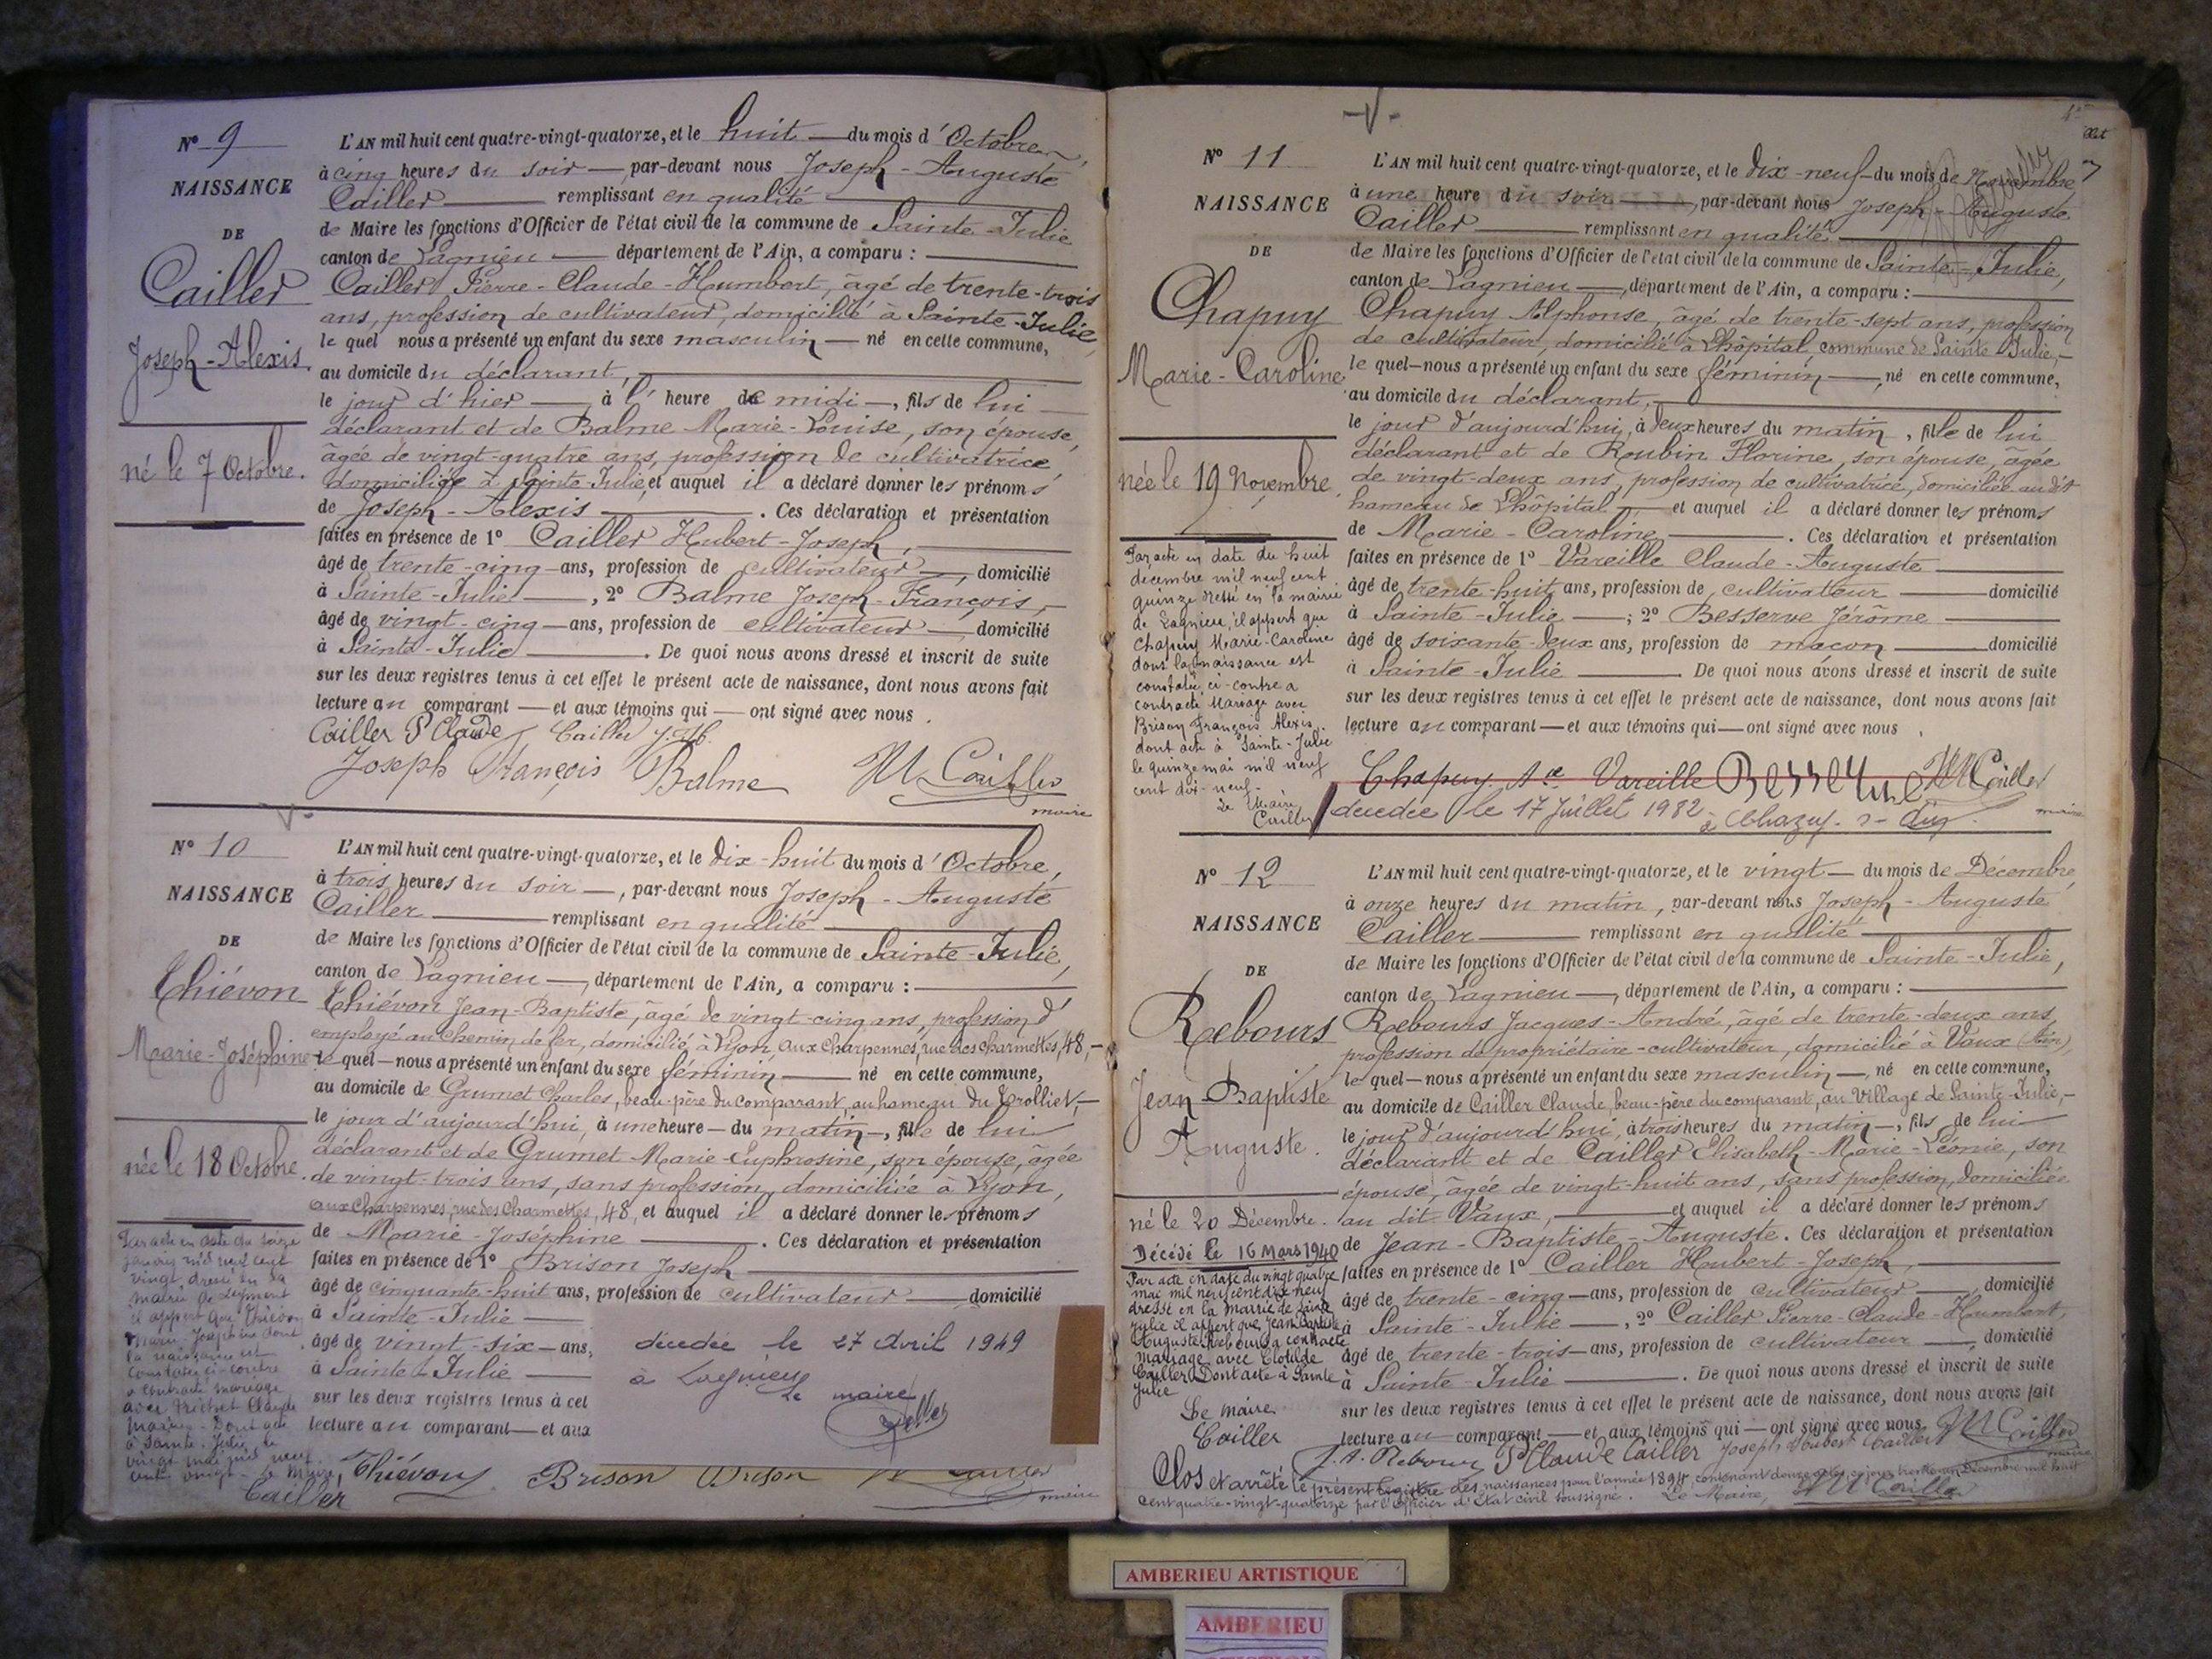 Nº 9
NAISSANCE
DE
Cailler
Joseph-Alexis.
né le 7 Octobre.
L'AN mil huit cent quatre-vingt-quatorze, et le huit du mois d'Octobre,
à cinq heures du soir, par-devant nous Joseph-Auguste
Cailler remplissant en qualité
de Maire les fonctions d'Officier de l'état civil de la commune de Sainte-Julie
canton de Lagnieu département de l'Ain, a comparu :
Cailler Pierre-Claude-Humbert, âgé de trente-trois
ans, profession de cultivateur, domicilié à Sainte-Julie,
le quel nous a présenté un enfant du sexe masculin né en cette commune,
au domicile du déclarant,
le jour d'hier à l'heure de midi, fils de lui
déclarant et de Balme Marie-Louise, son épouse,
âgée de vingt-quatre ans, profession de cultivatrice,
domiciliée à Sainte-Julie, et auquel il a déclaré donner les prénoms
de Joseph-Alexis. Ces déclaration et présentation
faites en présence de 1º Cailler Hubert-Joseph,
âgé de trente-cinq ans, profession de cultivateur, domicilié
à Sainte-Julie, 2º Balme Joseph-François,
âgé de vingt-cinq ans, profession de cultivateur domicilié
à Sainte-Julie. De quoi nous avons dressé et inscrit de suite
sur les deux registres tenus à cet effet le présent acte de naissance, dont nous avons fait
lecture au comparant et aux témoins qui ont signé avec nous.
Cailler P Claude Cailler
Joseph François Balme Cailler
maire
Nº 10
NAISSANCE
DE
Thiévon
Marie-Joséphine
née le 18 Octobre.
L'AN mil huit cent quatre-vingt-quatorze, et le dix-huit du mois d'Octobre,
à trois heures du soir, par-devant nous Joseph-Auguste
Cailler remplissant en qualité
de Maire les fonctions d'Officier de l'état civil de la commune de Sainte-Julie,
canton de Lagnieu, département de l'Ain, a comparu :
Thiévon Jean-Baptiste, âgé de vingt-cinq ans, profession d'
employé au chemin de fer, domicilié à Lyon, aux Charpennes, rue des Charmettes, 48,
le quel nous a présenté un enfant du sexe féminin né en cette commune,
au domicile de Grumet Charles, beau-père du comparant, au hameau du Trolliet,
le jour d'aujourd'hui, à une heure du matin, fille de lui
déclarant et de Grumet Marie-Euphrosine, son épouse, âgée
de vingt-trois ans, sans profession, domiciliée à Lyon,
aux Charpennes, rue des Charmettes, 48, et auquel il a déclaré donner les prénoms
de Marie-Joséphine. Ces déclaration et présentation
faites en présence de 1º Brison Joseph
âgé de cinquante-huit ans, profession de cultivateur domicilié
à Sainte-Julie
âgé de vingt-six ans,
à Sainte-Julie
sur les deux registres tenus à cet
lecture au comparant et aux
décédée le 27 Avril 1949
à Lagnieu
le maire
Par acte en date du seize
janvier mil neuf cent
vingt, dressé en la
mairie de Leyment
il appert que Thiévon
Marie-Joséphine dont
la naissance est
constatée ci-contre
a contracté mariage
avec Claude
Dont acte
à Sainte-Julie, le
vingt mai mil neuf
cent vingt. Le Maire,
Cailler
Thiévon Brison Brison Cailler
maire
Nº 11
NAISSANCE
DE
Chapuy
Marie-Caroline
née le 19 Novembre
L'AN mil huit cent quatre-vingt-quatorze, et le dix-neuf du mois de Novembre
à une heure du soir, par-devant nous Joseph-Auguste
Cailler remplissant en qualité
de Maire les fonctions d'Officier de l'état civil de la commune de Sainte-Julie,
canton de Lagnieu, département de l'Ain, a comparu :
Chapuy Alphonse, âgé de trente-sept ans, profession
de cultivateur, domicilié à Lhôpital, commune de Sainte Julie,
le quel nous a présenté un enfant du sexe féminin, né en cette commune,
au domicile du déclarant,
le jour d'aujourd'hui, à deux heures du matin, fille de lui
déclarant et de Roubin Florine, son épouse, âgée
de vingt-deux ans, profession de cultivatrice, domiciliée au dit
hameau de Lhôpital et auquel il a déclaré donner les prénoms
de Marie-Caroline. Ces déclaration et présentation
faites en présence de 1º Vareille Claude-Auguste
âgé de trente-huit ans, profession de cultivateur domicilié
à Sainte-Julie ; 2º Besserve Jérôme
âgé de soixante-deux ans, profession de maçon domicilié
à Sainte-Julie. De quoi nous avons dressé et inscrit de suite
sur les deux registres tenus à cet effet le présent acte de naissance, dont nous avons fait
lecture au comparant et aux témoins qui ont signé avec nous.
Par acte en date du huit
décembre mil neuf cent
quinze dressé en la mairie
de Lagnieu, il appert que
Chapuy Marie-Caroline
dont la naissance est
constatée ci-contre a
contracté mariage avec
Brison François Alexis.
dont acte à Sainte-Julie
le quinze mai mil neuf
cent dix-neuf.
Le Maire
Cailler
Chapuy Vareille Besserve Cailler
maire
décédée le 17 Juillet 1982 à Chazey-s-Ain
Nº 12
NAISSANCE
DE
Rebours
Jean-Baptiste
Auguste.
né le 20 Décembre.
Décédé le 16 Mars 1940
L'AN mil huit cent quatre-vingt-quatorze, et le vingt du mois de Décembre
à onze heures du matin, par-devant nous Joseph-Auguste
Cailler remplissant en qualité
de Maire les fonctions d'Officier de l'état civil de la commune de Sainte-Julie,
canton de Lagnieu, département de l'Ain, a comparu :
Rebours Jacques-André, âgé de trente-deux ans,
profession de propriétaire-cultivateur, domicilié à Vaux (Ain),
le quel nous a présenté un enfant du sexe masculin, né en cette commune,
au domicile de Cailler Claude, beau-père du comparant, au village de Sainte-Julie,
le jour d'aujourd'hui, à trois heures du matin, fils de lui
déclarant et de Cailler Elisabeth-Marie-Léonie, son
épouse, âgée de vingt-huit ans, sans profession, domiciliée
au dit Vaux, et auquel il a déclaré donner les prénoms
de Jean-Baptiste-Auguste. Ces déclaration et présentation
faites en présence de 1º Cailler Hubert-Joseph,
âgé de trente-cinq ans, profession de cultivateur, domicilié
à Sainte-Julie, 2º Cailler Pierre-Claude-Humbert,
âgé de trente-trois ans, profession de cultivateur, domicilié
à Sainte-Julie. De quoi nous avons dressé et inscrit de suite
sur les deux registres tenus à cet effet le présent acte de naissance, dont nous avons fait
lecture au comparant et aux témoins qui ont signé avec nous.
Par acte en date du vingt quatre
mai mil neuf cent dix neuf
dressé en la mairie de Sainte
Julie il appert que Jean Baptiste
Auguste Rebours a contracté
mariage avec Clotilde
Cailler Dont acte à Sainte
Julie
Le maire
Cailler
J. A. Rebours P Claude Cailler Joseph Hubert Cailler Cailler
maire
Clos et arrêté le présent registre des naissances pour l'année 1894, contenant douze actes, ce jour trente-un Décembre mil huit
cent quatre-vingt-quatorze par l'Officier d'Etat civil soussigné. Le Maire, Cailler
AMBERIEU ARTISTIQUE
AMBERIEU